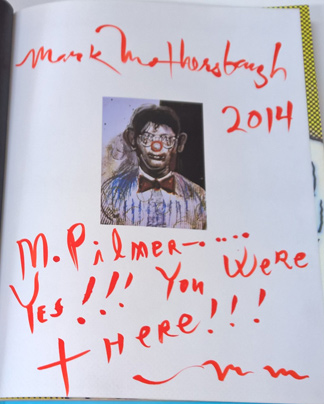 Mark Mothersbaugh
2014
M. Pilmer-....
Yes!!! You Were
tHere!!!
mm